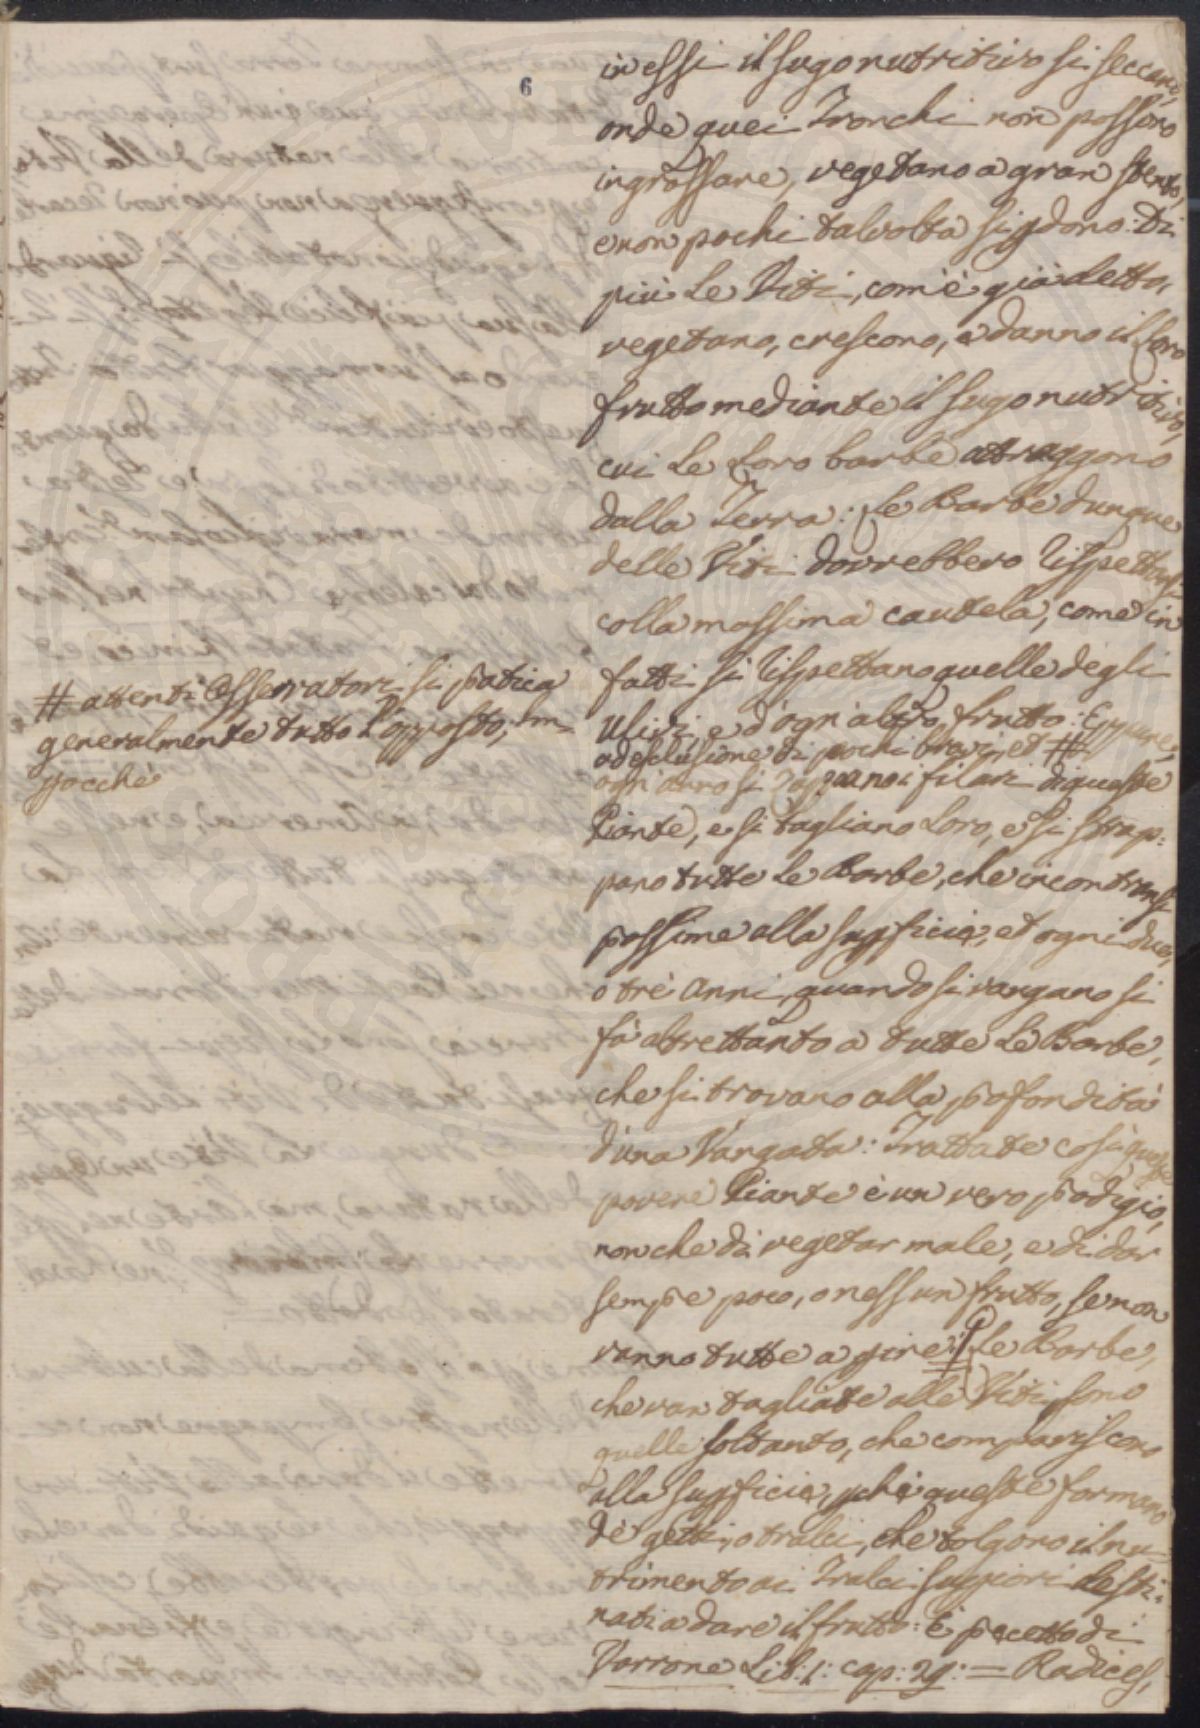 6
in essi il sugo nutritivo si seccano,
onde quei Tronchi non possono
ingrossare, vegetano a gran stento,
e non pochi talvolta si pdono: Di
più le Viti, com'è già detto,
vegetano, crescono, e danno il loro
frutto mediante il sugo nutritivo,
cui le loro barbe attraggono
dalla Terra: le Barbe dunque
delle Viti dovrebbero rispettarsi
colla massima cautela, come in
fatti si rispettano quelle degli
Ulivi, e d'ogn'altro frutto: Eppure,
ad esclusione di pochi bravi, et #
ogn'anno si zappano i filari di queste
Piante, e si tagliano loro, e si strap:
pano tutte le Barbe, che incontransi
possime alla supficie, et ogni due,
o tre anni, quando si vangano si
fà altrettanto a tutte le Barbe,
che si trovano alla pofondità
d'una Vangata: Trattate così queste
povere Piante è un vero podigio,
non che di vegetar male, e di dar
sempe poco, o nessun frutto, se non
vanno tutte a pire: le Barbe,
che van tagliate alle Viti sono
quelle soltanto, che compariscono
alla supficie, pchè queste formano
de' getti, o tralci, che tolgono il nu=
trimento ai Tralci supiori desti:
nati a dare il frutto: È pcetto di
Varrone Lib: 1: cap: 29: = Radices,
# attenti Osservatori si patica
generalmente tutto l'opposto; Im=
pocchè